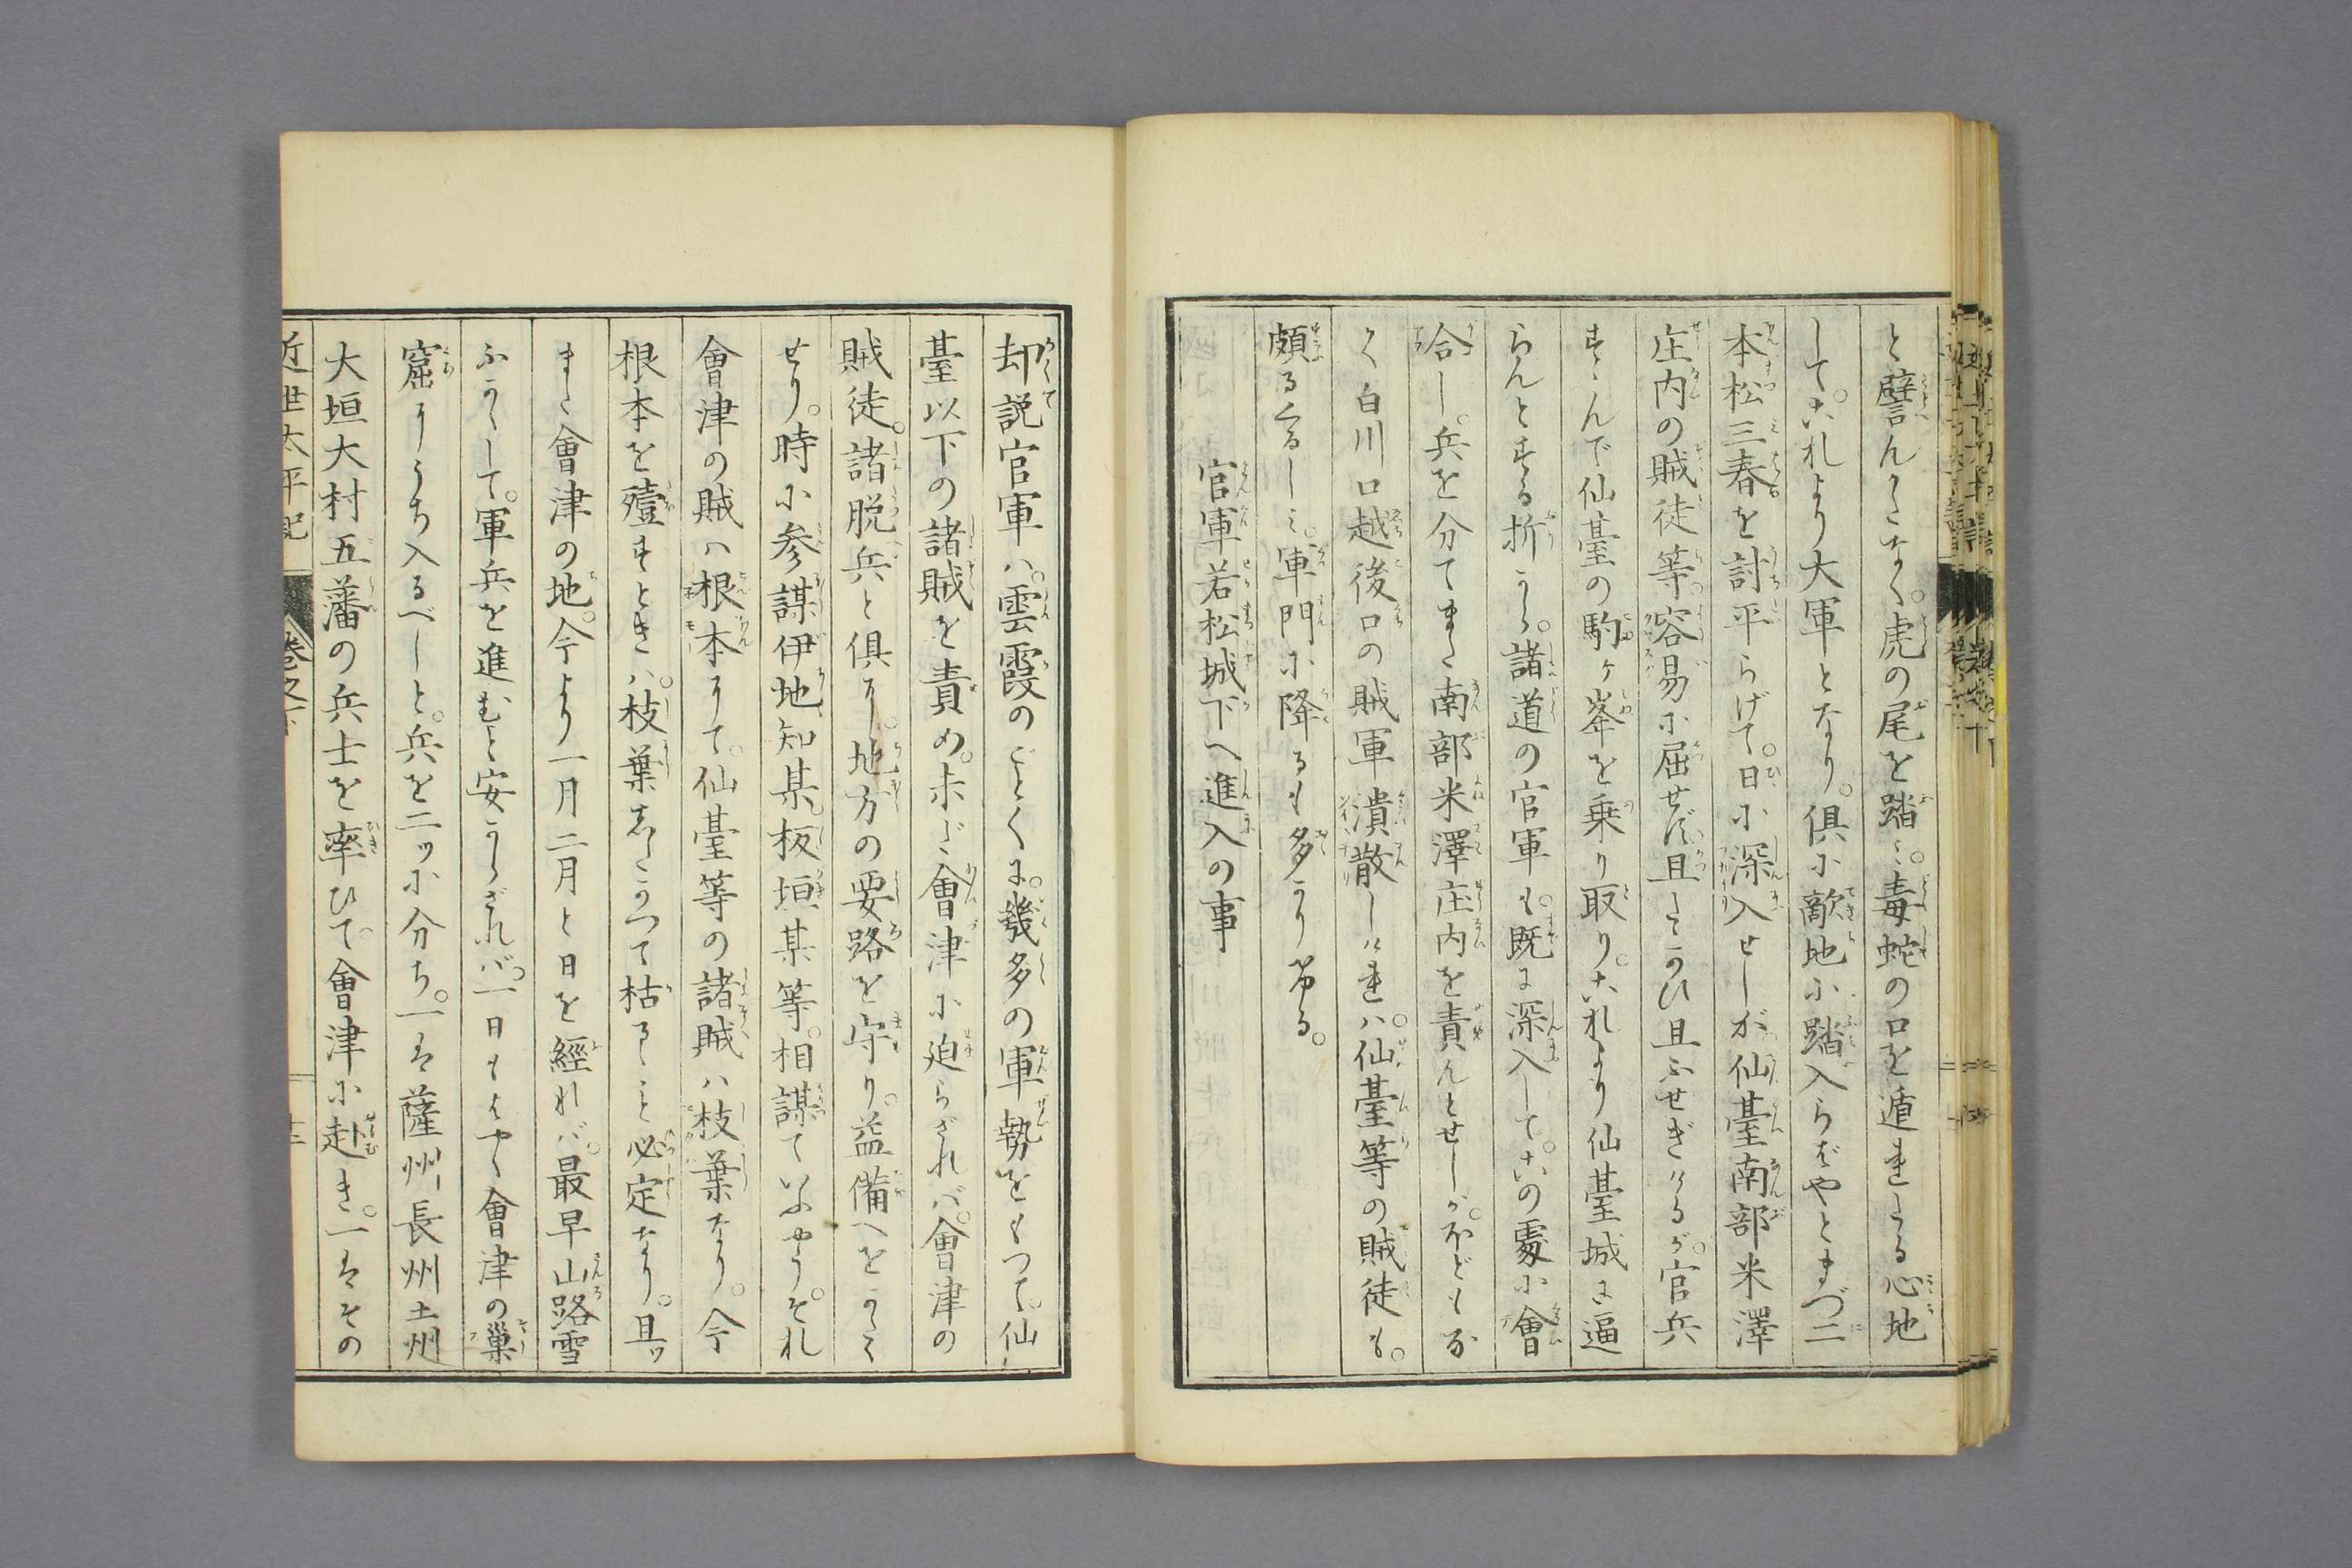 と譬んかたなく。虎の尾を踏ミ。毒蛇の口を遁れたる心地
して。これより大軍となり。倶に敵地に踏入らばやとまづ二
本松三春を討平らげて。日に深入せしが仙臺南部米澤
庄内の賊徒等。容易に屈せず且たゝかひ且ふせぎけるが。官兵
すゝんで仙臺の駒ヶ峯を乗り取り。これより仙臺城に逼
らんとする折から。諸道の官軍も。既に深入して。この處に會
合し。兵を分てまた南部米澤庄内を責んとせしが。ほどな
く白川口越後口の賊軍潰散しければ。仙臺等の賊徒も。
頗るくるしミ。軍門に降るも多かりける。
官軍若松城下へ進入の事
却説官軍ハ。雲霞のごとくに。幾多の軍勢をもつて。仙
臺以下の諸賊を責め。未だ會津に迫らざれバ。會津の
賊徒。諸脱兵と倶に。地方の要路を守り。益備へをかく
せり。時に参謀伊地知某。板垣某等。相謀ていふやう。それ
會津の賊ハ根本にて。仙臺等の諸賊ハ枝葉なり。今
根本を殪すときハ。枝葉したがつて枯るゝこと必定なり。且ッ
また會津の地。今より一月二月と日を經れバ。最早山路雪
ふかくして。軍兵を進むこと安からざれバ。一日もはやく會津の巣
窟にうち入るべしと。兵を二ッに分ち。一は薩州長州土州
大垣大村五藩の兵士を率ひて。會津に赴き。一はその
近世太平記
巻之下